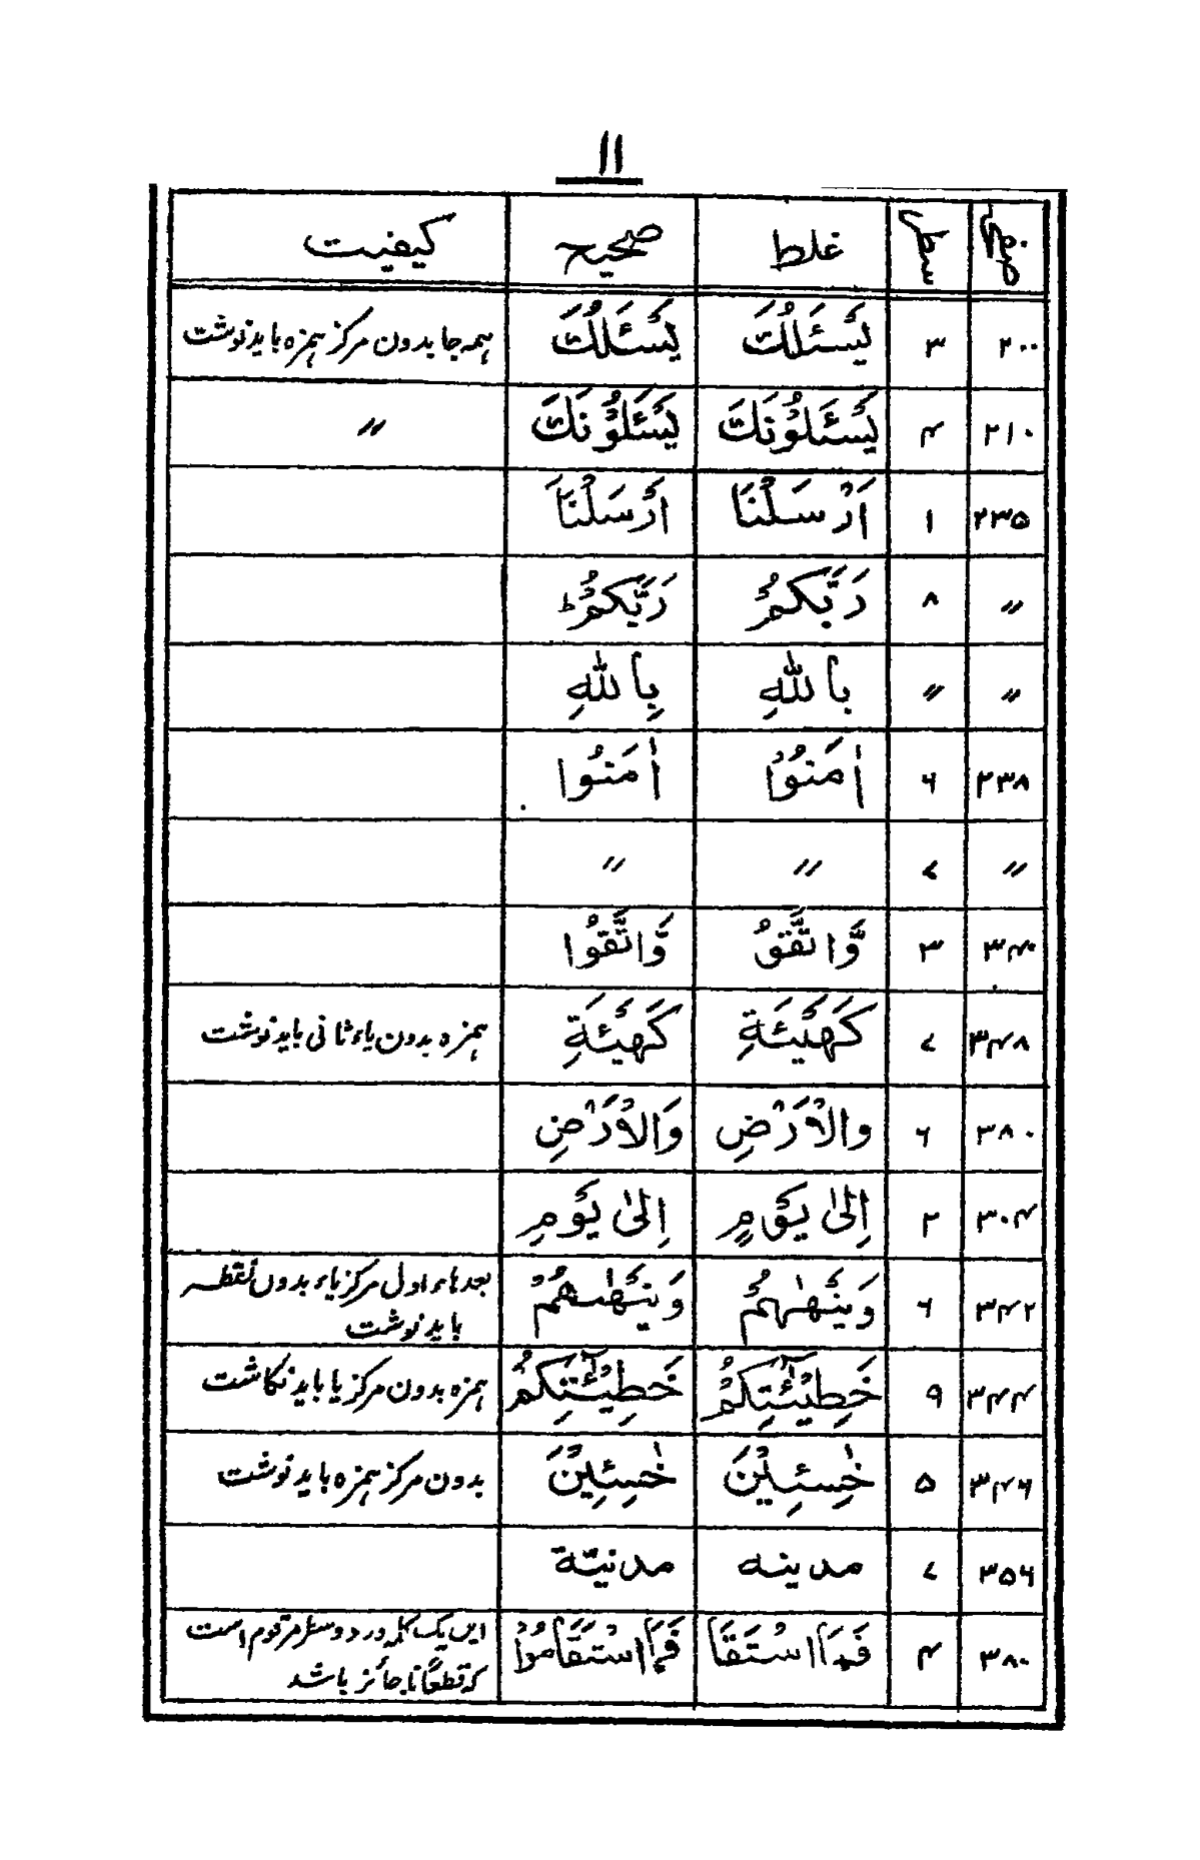 ۱۱
صفحہ سطر غلط صحیح کیفیت
۲۰۰ ۳ یَسْئَلُكَ یَسْـَٔلُكَ ہمہ جا بدون مرکز ہمزہ باید نوشت
۲۱۰ ۴ یَسْئَلُوْنَكَ یَسْـَٔلُوْنَكَ 〃
۲۳۵ ۱ اَرْسَلْنَا اَرْسَلْنَا
〃 ۸ رَبَّكُمْ رَبَّكُمْ ط
〃 〃 باللّٰهِ بِاللّٰهِ
۲۳۸ ۶ اٰمَنُوْا اٰمَنُوا
〃 ۷ 〃 〃
۳۴۰ ۳ وَّاتَّقُ وَّاتَّقُوا
۳۴۸ ۷ كَهَیْئَةِ كَهَیْـَٔةِ ہمزہ بدون یاء ثانی باید نوشت
۳۸۰ ۶ والْاَرْضِ وَالْاَرْضِ
۳۰۴ ۲ اِلىٰ یَوْمٍ اِلىٰ یَوْمِ
۳۴۲ ۶ وَیَنْهٰهُمْ وَیَنْهٰىهُمْ بعد ہاء اول مرکز یاء بدون نقطہ
باید نوشت
۳۴۴ ۹ خَطِیْئٰٓتِكُمْ خَطِیْٓـٰٔتِكُمْ ہمزہ بدون مرکز یا باید نگاشت
۳۴۶ ۵ خٰسِئِیْنَ خٰسِـِٕیْنَ بدون مرکز ہمزہ باید نوشت
۳۵۶ ۷ مدینه مدنیّة
۳۸۰ ۴ فَمَا اسْتَقَا فَمَا اسْتَقَامُوْا ایں یک کلمہ در دو سطر مرقوم است
کہ قطعًا نا جائز باشد